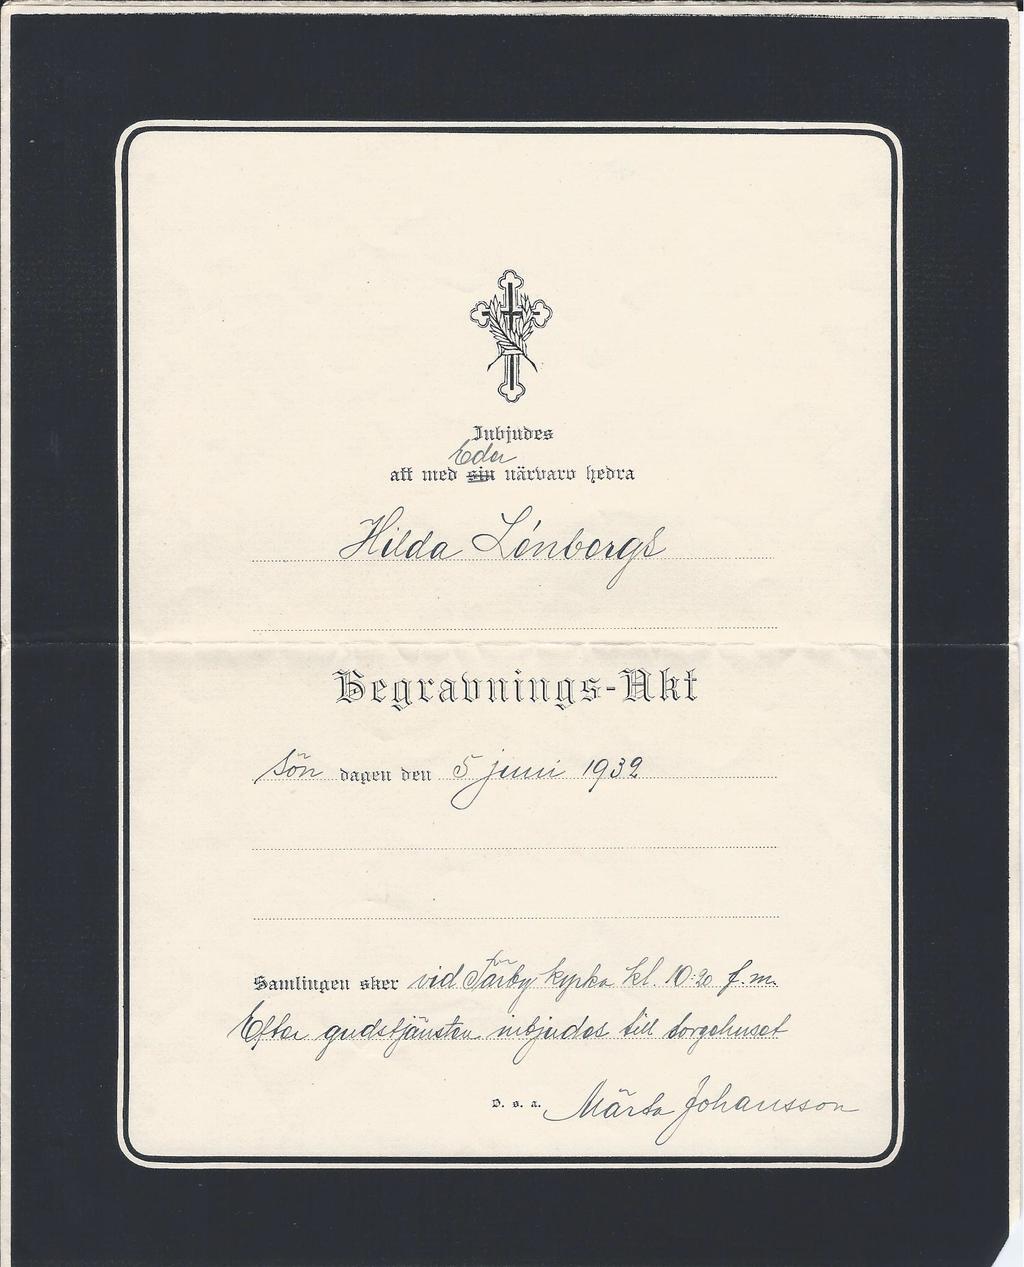 Inbjudes
Eder
att med sin närvaro hedra
Hilda Lönborgs
Begravnings-Akt
Sön dagen den 5 juni 1932
Samlingen sker vid Tärby kyrka kl. 10:20 f.m.
Efter gudstjänsten inbjudes till sorgehuset
O. s. a. Märta Johansson